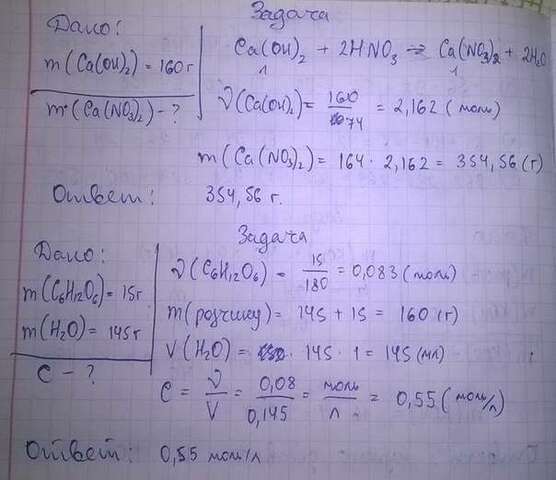 Задача
Дано:
m(Ca(OH)₂) = 160 г
m(Ca(NO₃)₂) - ?
Ca(OH)₂ + 2HNO₃ → Ca(NO₃)₂ + 2H₂O
1 1
ν(Ca(OH)₂) = 160/74 = 2,162 (моль)
m(Ca(NO₃)₂) = 164 · 2,162 = 354,56 (г)
Ответ: 354,56 г.
Задача
Дано:
m(C₆H₁₂O₆) = 15 г
m(H₂O) = 145 г
C - ?
ν(C₆H₁₂O₆) = 15/180 = 0,083 (моль)
m(розчину) = 145 + 15 = 160 (г)
V(H₂O) = 145 · 1 = 145 (мл)
C = ν/V = 0,08/0,145 = моль/л = 0,55 (моль/л)
Ответ: 0,55 моль/л